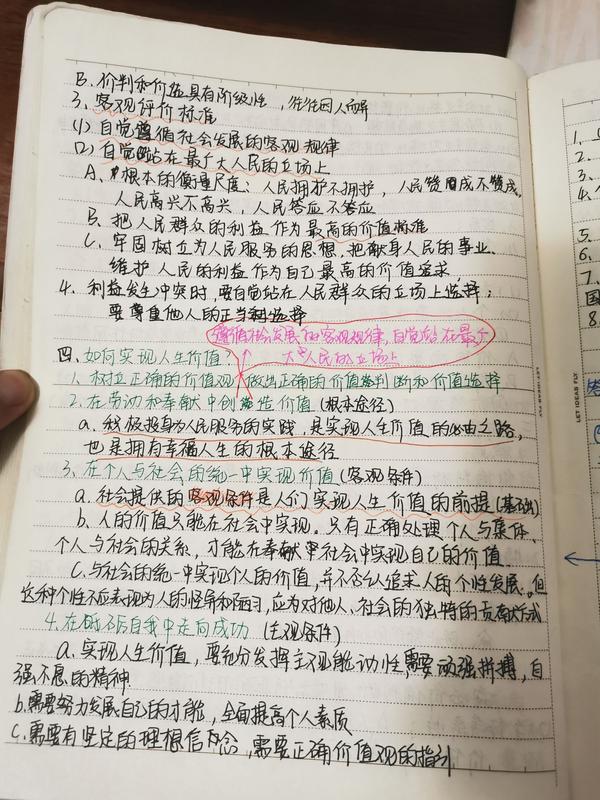 B. 价判和价值具有阶级性，往往因人而异
3. 客观评价标准
(1) 自觉遵循社会发展的客观规律
(2) 自觉站在最广大人民的立场上
A. 根本的衡量尺度：人民拥护不拥护，人民赞成不赞成，
人民高兴不高兴，人民答应不答应
B. 把人民群众的利益作为最高的价值标准
C. 牢固树立为人民服务的思想，把献身人民的事业、
维护人民的利益作为自己最高的价值追求
4. 利益发生冲突时，要自觉站在人民群众的立场上选择；
要尊重他人的正当利选择
遵循社会发展的客观规律，自觉站在最广
大人民的立场上
四、如何实现人生价值？
1. 树立正确的价值观 做出正确的价值判断和价值选择
2. 在劳动和奉献中创造价值（根本途径）
a. 积极投身为人民服务的实践，是实现人生价值的必由之路，
也是拥有幸福人生的根本途径
3. 在个人与社会的统一中实现价值（客观条件）
a. 社会提供的客观条件是人们实现人生价值的前提（基础）
b. 人的价值只能在社会中实现。只有正确处理个人与集体、
个人与社会的关系，才能在奉献中社会中实现自己的价值
C. 与社会的统一中实现个人的价值，并不否认追求人的个性发展。但
这种个性不应表现为人的怪异和陋习，应为对他人、社会的独特的贡献方式
4. 在砥砺自我中走向成功（主观条件）
a. 实现人生价值，要充分发挥主观能动性，需要顽强拼搏，自
强不息的精神
b. 需要努力发展自己的才能，全面提高个人素质
C. 需要有坚定的理想信念，需要正确价值观的指引
LET IDEAS FLY
LET IDEAS FLY
1.
2.
3.
4.
5.
6.
7.
国
8